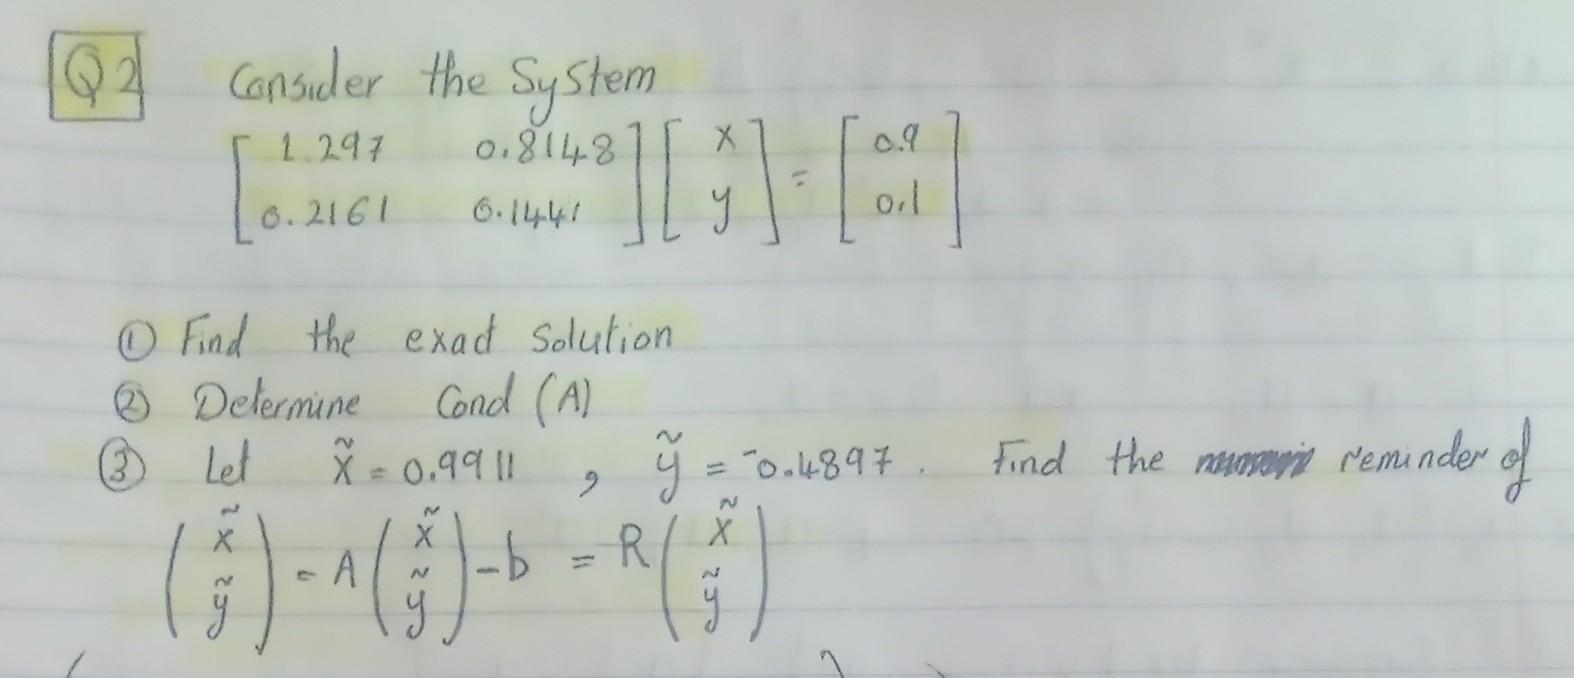 Q2 Consider the System
[ 1.297 0.8148 ] [ x ] = [ 0.9 ]
[ 0.2161 0.1441 ] [ y ] [ 0.1 ]
① Find the exact solution
② Determine Cond (A)
③ Let x̃ = 0.9911 , ỹ = -0.4897 . Find the reminder of
(x̃ ỹ) = A (x̃ ỹ) - b = R (x̃ ỹ)